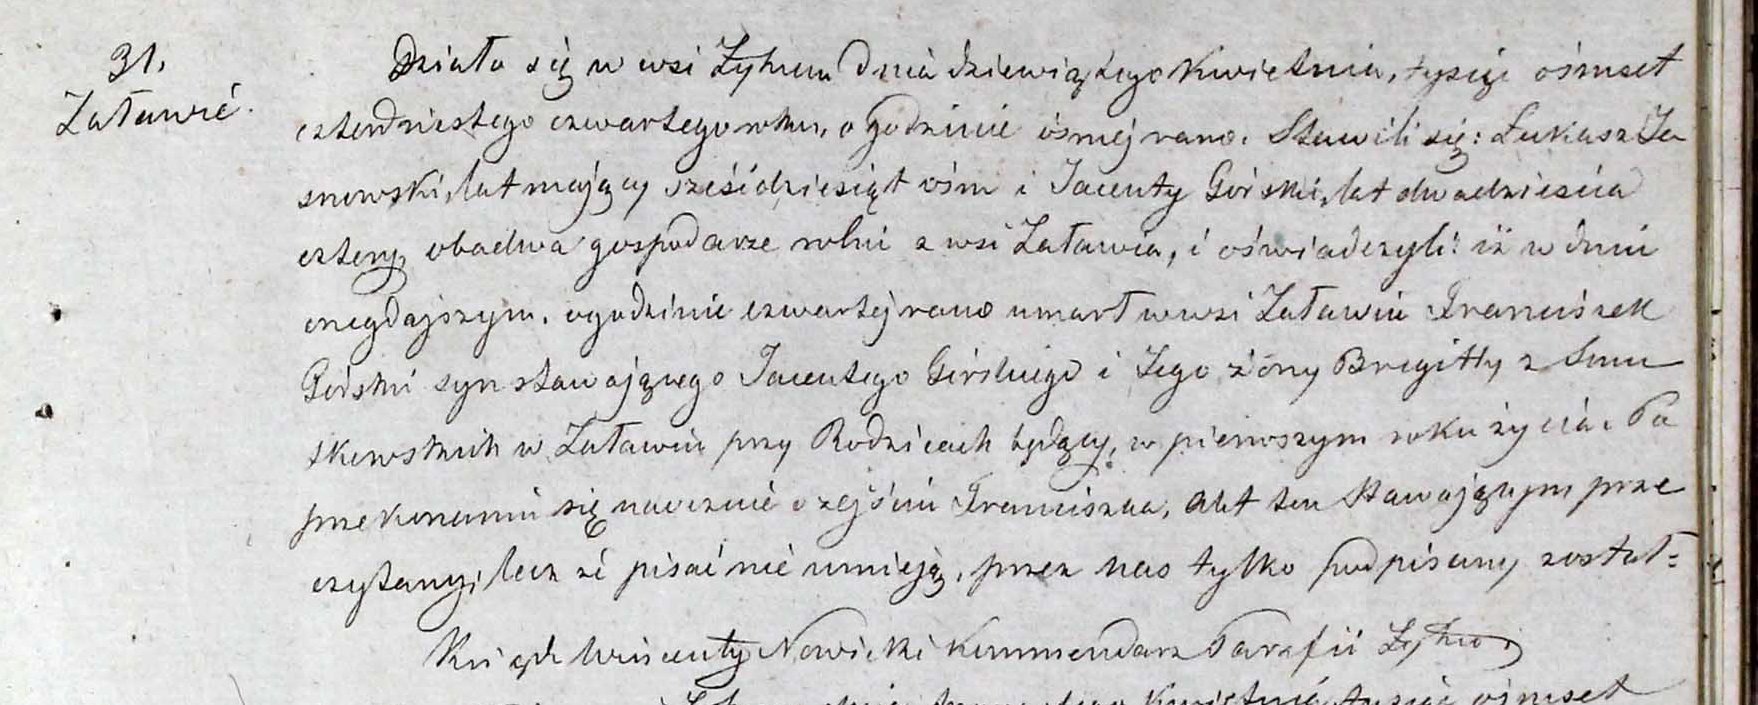 31.
Załawie.
Działo się w wsi Żytnem dnia dziewiątego Kwietnia, tysiąc ośmset
czterdziestego czwartego roku, o godzinie ósmej rano. Stawili się: Łukasz Ja
snowski, lat mający sześćdziesiąt ośm i Jacenty Górski, lat dwadzieścia
cztery, obadwa gospodarze rolni z wsi Załawia, i oświadczyli: iż w dniu
onegdajszym, o godzinie czwartej rano umarł w wsi Załawiu Franciszek
Górski syn stawającego Jacentego Górskiego i Jego żony Brygitty z
w Załawiu przy Rodzicach będący, w pierwszym roku życia. Po
przekonaniu się naocznie o zejściu Franciszka, Akt ten Stawającym prze
czytany, lecz że pisać nie umieją, przez nas tylko podpisany został=
Ksiądz Wincenty Nowicki Kommendarz Parafii Żytno
Kwietnia tysiąc ośmset